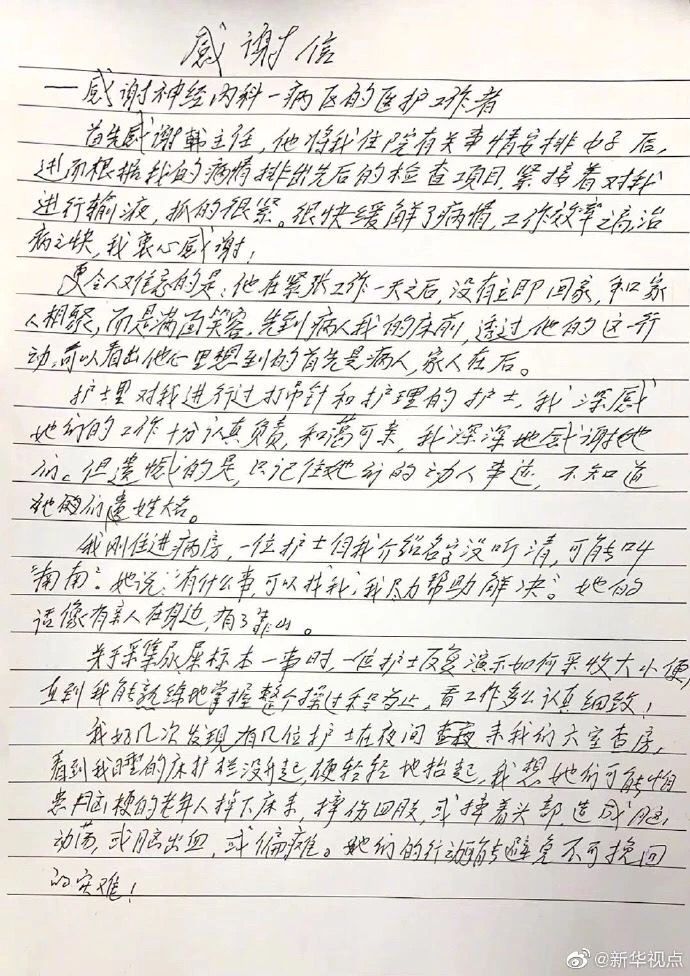 感谢信
——感谢神经内科一病区的医护工作者
首先感谢韩主任，他将我住院有关事情安排好后，
进而根据我的病情排出先后的检查项目，紧接着对我
进行输液，抓的很紧。很快缓解了病情，工作效率之高，治
病之快，我衷心感谢！
更令人满意的是：他在紧张工作一天之后，没有立即回家，和家
人相聚，而是满面笑容，先到病人我的床前，透过他的这一行
动，可以看出他心里想到的首先是病人，家人在后。
护士里对我进行过打吊针和护理的护士，我深感
她们的工作十分认真负责，和蔼可亲，我深深地感谢她
们。但遗憾的是，只记住她们的动人事迹，不知道
她们遗姓大名。
我刚住进病房，一位护士向我介绍名字没听清，可能叫
“南南”。她说：“有什么事，可以找我，我尽力帮助解决”。她的
话像有亲人在身边，有了靠山。
关于采集尿屎标本一事时，一位护士反复演示如何采收大小便，
直到我能熟练地掌握整个操过程为止，看工作多么认真细致！
我好几次发现有几位护士在夜间来我们六室查房，
看到我睡的床护栏没升起，便轻轻地抬起，我想她们可能怕
患脑梗的老年人掉下床来，摔伤四肢，或摔着头部，造成脑
动荡，或脑出血，或偏瘫。她们的行动能避免不可挽回
的灾难！
@新华视点